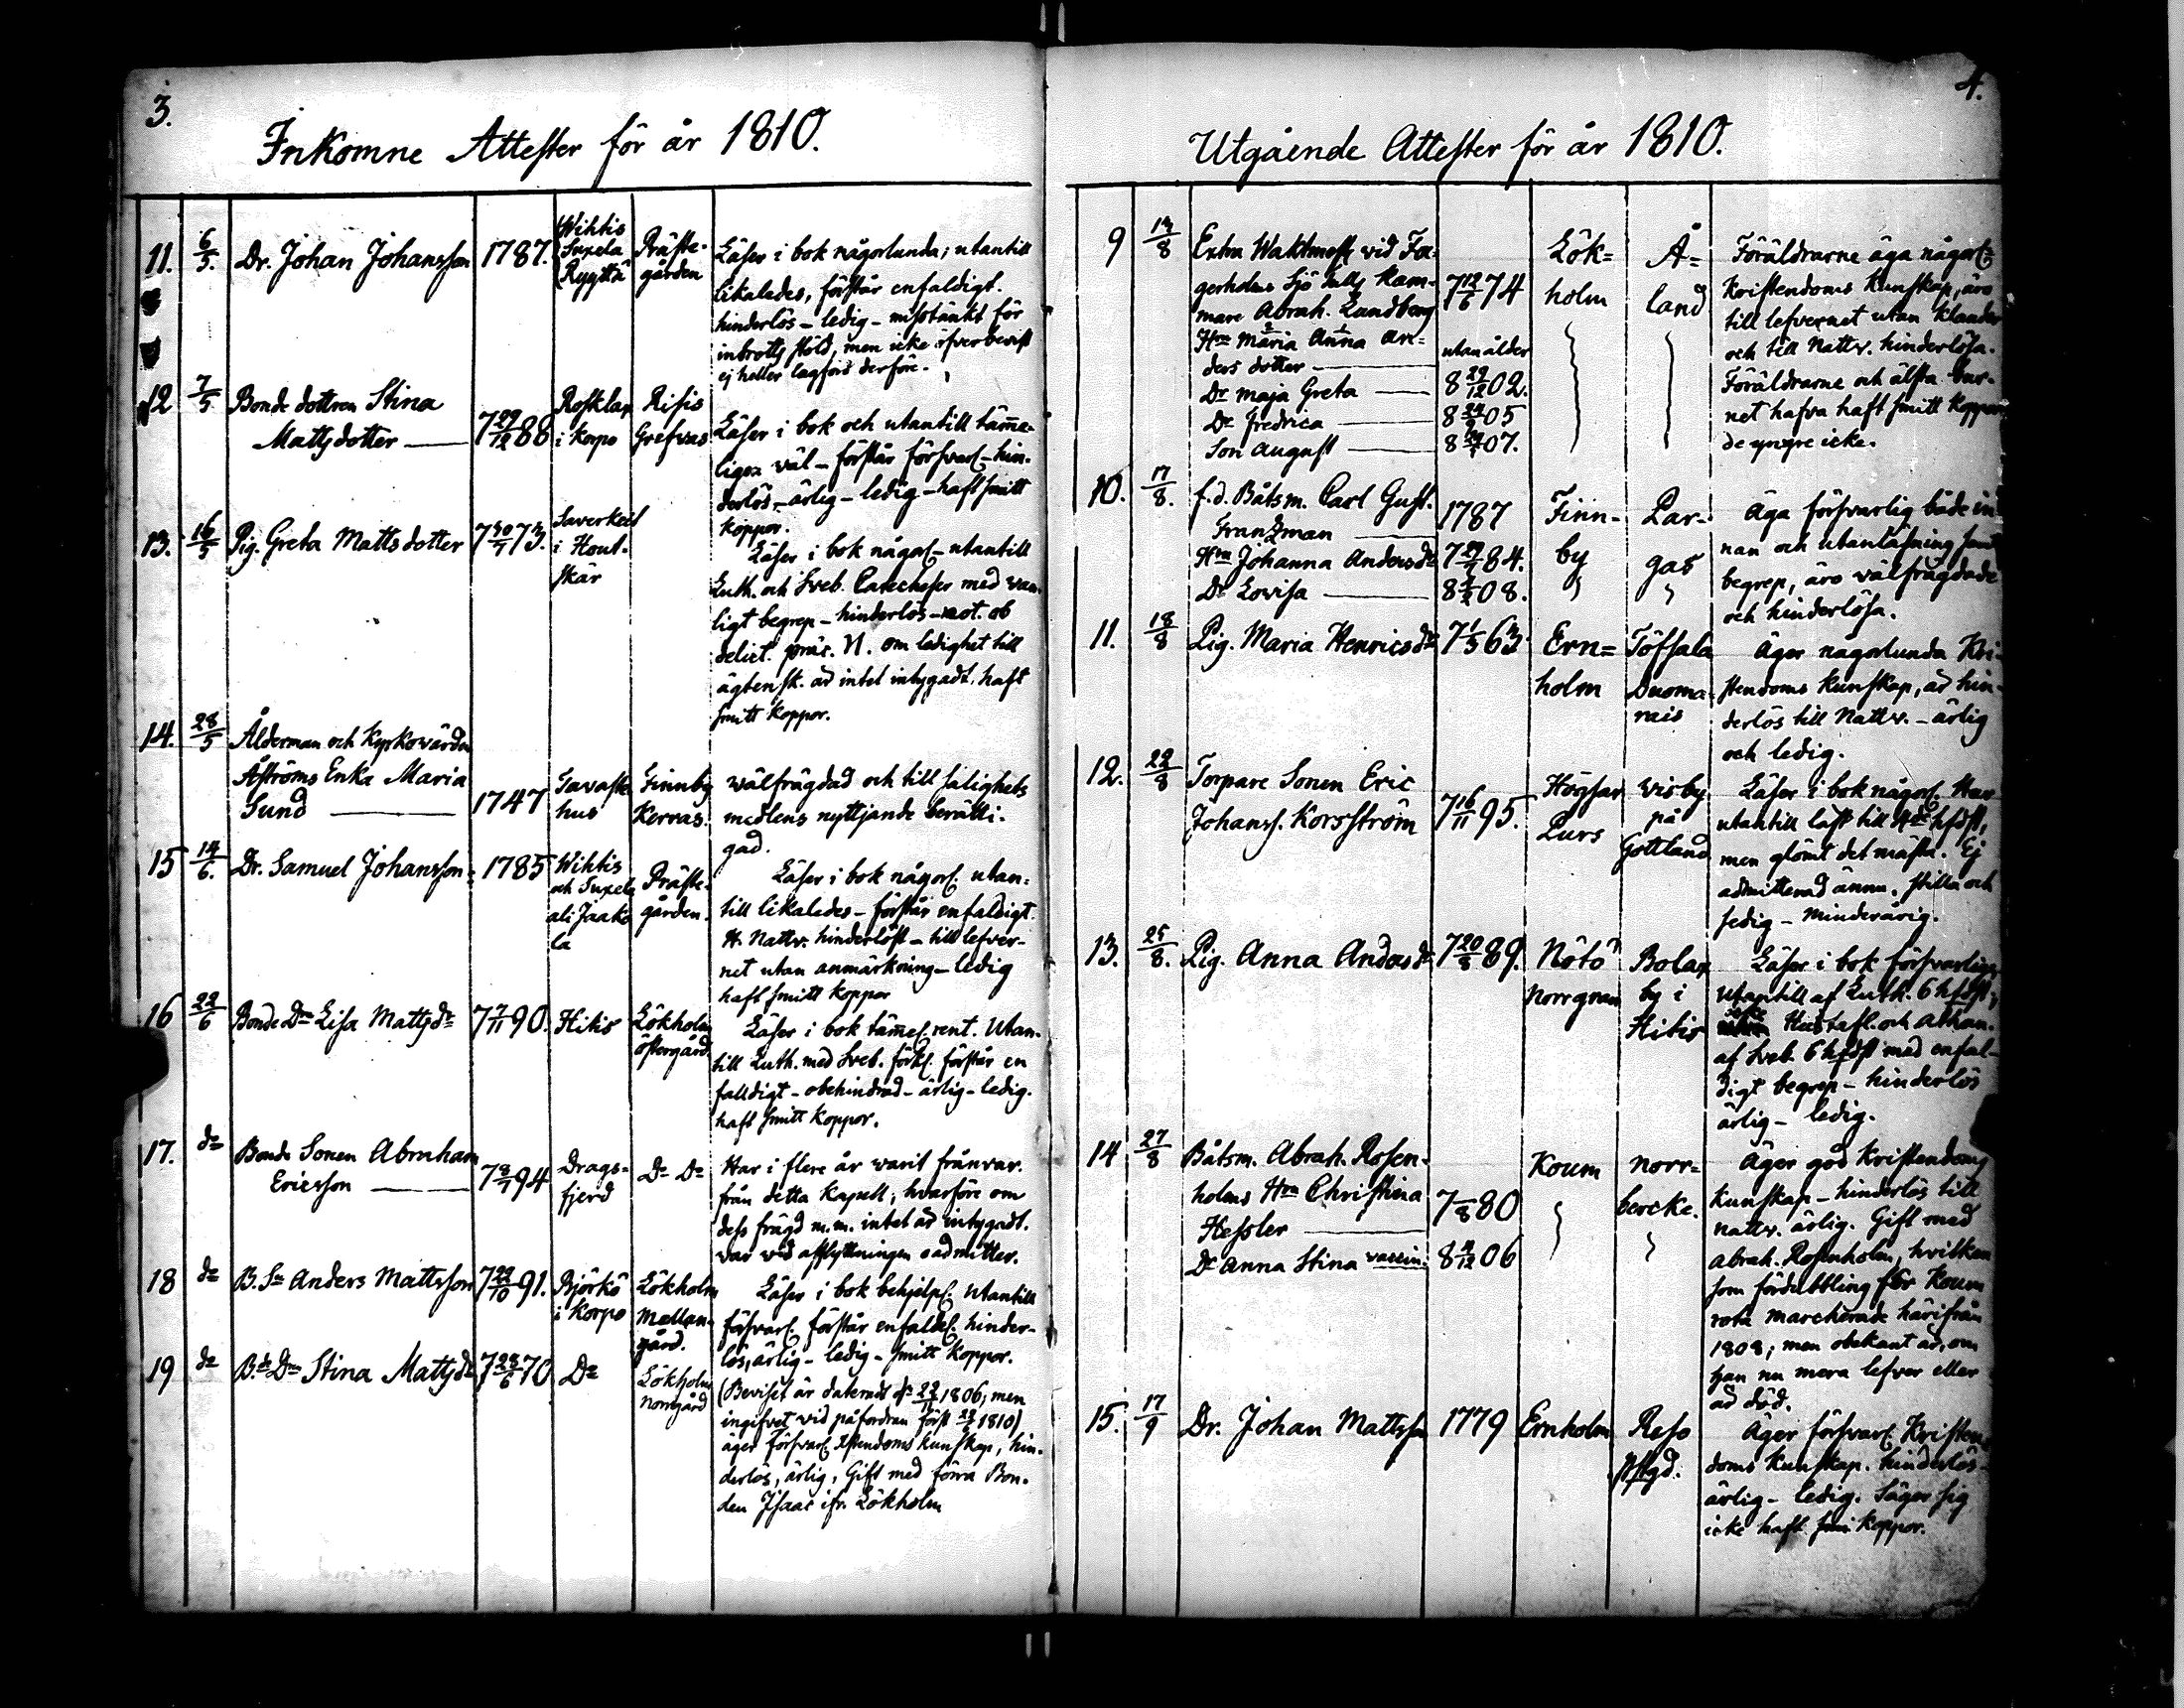 3.
Inkomne Attester för år 1810.
11. 6/5. Dr. Johan Johansson 1787. Wihtis Suxela Ryyttä Präste-gården
Läser i bok någorlunda; utantill
likaledes, förstår enfaldigt.
hinderlös - ledig - misstänkt för
inbrotts stöld, men icke öfverbevist
ej heller lagförd derföre.
12 7/5 Bonde dottren Stina
Mattsdotter 7 29/12 88 Rosklax i Korpo Risis Grefvas
Läser i bok och utantill tämme-
ligen väl - förstår försvarl. - hin-
derlös - ärlig - ledig - haft smitt
koppor.
13. 16/5 Pig. Greta Matts dotter 7 30/7 73. i Hout-skär
Läser i bok någorl. - utantill
Luth. och Sveb. Catecheser med van-
ligt begrep - hinderlös - not. ob
delict. præc. VI. om ledighet till
ägtensk. är intet intygadt. haft
smitt koppor.
14. 28/5 Ålderman och Kyrkovärden
Åströms Enka Maria
Sund 1747 Tavaste hus Finnby Kervas.
wälfrägdad och till salighets
medlens nyttjande berätti-
gad.
15 14/6. Dr. Samuel Johansson 1785 Wihtis och Suxela ali Jaakola Präste-gården.
Läser i bok någorl. utan-
till likaledes - förstår enfaldigt
H. Nattv. hinderlöst - till lefver-
net utan anmärkning - ledig
haft smitt koppor
16 22/6 Bonde Dr Lisa Mattsdr 7 7/11 90. Hitis Lökholm östergård
Läser i bok tämel. rent. Utan-
till Luth. med Sveb. förkl. förstår en
falldigt - obehindrad - ärlig - ledig.
haft smitt koppor.
17. do Bonde Sonen Abraham
Ericsson 7 8/1 94 Drags-fjerd Do Do
Har i flere år warit frånvar.
från detta Kapell; hvarföre om
dess frägd m.m. intet är intygadt.
var wid afflyttningen oadmitter.
18 do B. Sn Anders Mattsson 7 22/10 91. Björkö i Korpo Lökholm Mellan-gård.
Läser i bok behjelpl. utantill
försvarl. förstår enfaldel. hinder-
lös, ärlig - ledig - smitt koppor.
19 do B.de Drn Stina Mattsdr 7 28/6 70 Do Lökholm norrgård
(Beviset är dateradt d. 22/11 1806; men
ingifvet vid påfordran först 22/6 1810)
äger försvarl. Xstendoms kunskap, hin-
derlös, ärlig, Gift med förra Bon-
den Isaac ifr. Lökholm
4.
Utgående Attester för år 1810.
9 13/8 Extra Waktmest. vid Fa-
gerholms Sjö Tulls Kam-
mare Abrah. Lundberg 7 12/6 74 Lök=holm Å=land
Hru Maria Anna An-
ders dotter utan ålder
Dr Maja Greta 8 29/12 02.
Dr Fredrica 8 24/9 05
Son August 8 07.
Föräldrarne äga någorl.
Kristendoms Kunskap, äro
till lefvernet utan klander
och till Nattv. hinderlösa.
Föräldrarne och älsta bar-
net hafva haft smitt koppor
de yngre icke.
10. 17/8. f.d. Båtsm. Carl Gust.
Franzman 1787 Finn-by Par-gas
Hru Johanna Andersdr 7 84.
Dr Lovisa 8 08.
Äga försvarlig både in-
nan och utanläsning samt
begrep, äro wälfrägdade
och hinderlösa.
11. 18/8 Pig. Maria Henricsdr 7 1/3 63 Ern=holm Töfsala
Äger någorlunda Kri-
stendoms kunskap, är hin-
derlös till Nattv. - ärlig
och ledig.
12. 22/8 Torpare Sonen Eric
Johanss. Korsström 7 16/11 95. Högsar Lurs Wisby på Gottland
Läser i bok någorl. Har
utantill läst till
men glömt det mästa. Ej
admitterad ännu. Stilla och
sedig - minderårig.
13. 25/8. Pig. Anna Andersdr 7 20/8 89. Nötö Norrgran Bolax by i Hitis
Läser i bok försvarligt
utantill af Luth. 6 hfdst,
Hustafl. och Athan.
af Sveb. 6 hfdst med enfal-
digt begrep - hinderlös
ärlig - ledig.
14 27/8 Båtsm. Abrah. Rosen-
holms Hru Christina
Hessler 7 /8 80 Koum Norr=bercke.
Dr Anna Stina vaccin. 8 11/12 06
Äger god Kristendoms
kunskap - hinderlös till
nattv. ärlig. Gift med
Abrah. Rosenholm, hvilken
som fördubbling för Koum
rota marcherade härifrån
1808; men obekant är, om
han nu mera lefver eller
är död.
15. 17/9 Dr. Johan Mattsson 1779 Ernholm Reso
Äger försvarl. Kristen-
doms kunskap. hinderlös -
ärlig - ledig. Säger sig
icke haft smi koppor.